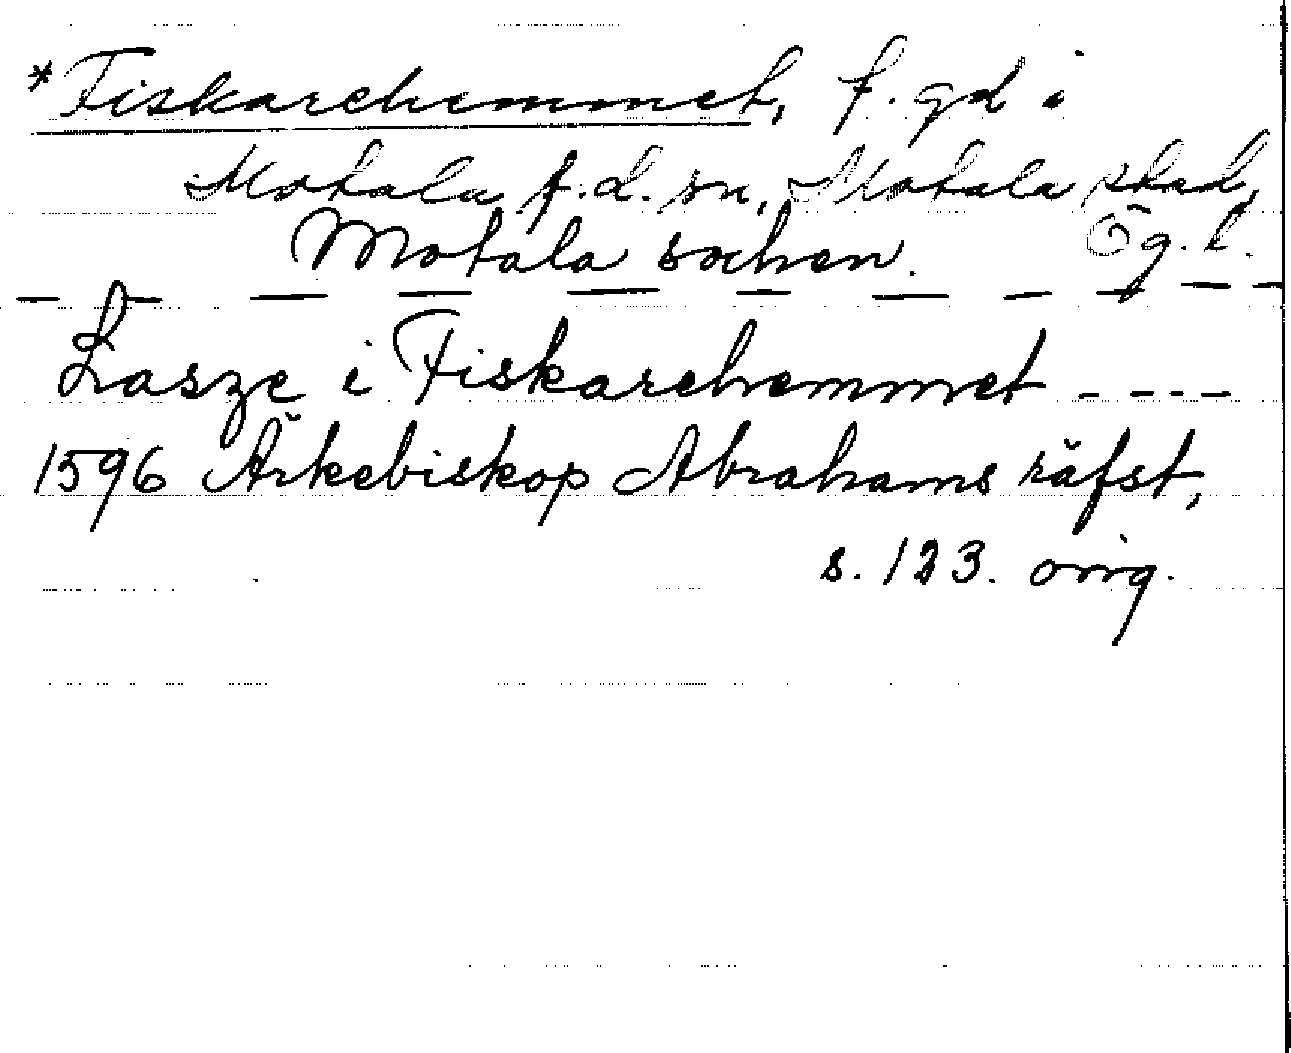 *Fiskarehemmet, f. gd i
Motala f.d. sn, Motala stad,
Motala sochen. Ög. l.
Lasze i Fiskarehemmet - - - -
1596 Ärkebiskop Abrahams räfst,
s. 123. orig.